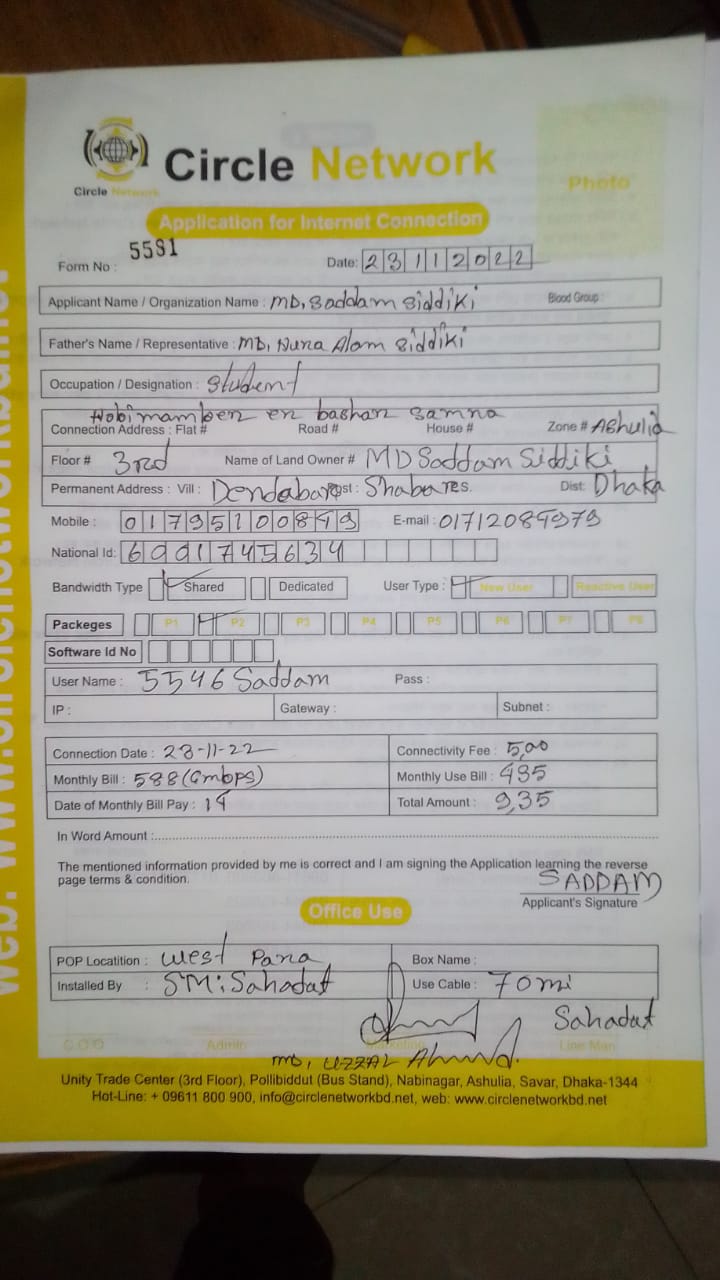 Circle Network
Circle Network
Photo
Application for Internet Connection
Form No : 5581
Date: 23112022
Applicant Name / Organization Name : MD, Saddam Siddiki Blood Group :
Father's Name / Representative : MD, Nura Alam Siddiki
Occupation / Designation : Student
Connection Address : Flat # Road # House # Zone # Ashulia
Floor # 3rd Name of Land Owner # MD Saddam Siddiki
Permanent Address : Vill : Dendabar Post : Shabar P.S. Dist: Dhaka
Mobile : 01795100849 E-mail : 01712084979
National Id: 6001745634
Bandwidth Type Shared Dedicated User Type : New User Reactive User
Packeges P1 P2 P3 P4 P5 P6 P7 P8
Software Id No
User Name : 5546 Saddam Pass :
IP : Gateway : Subnet :
Connection Date : 23-11-22 Connectivity Fee : 5,00
Monthly Bill : 588 (6mbps) Monthly Use Bill : 435
Date of Monthly Bill Pay : 14 Total Amount : 9,35
In Word Amount :
The mentioned information provided by me is correct and I am signing the Application learning the reverse
page terms & condition.
SADDAM
Applicant's Signature
Office Use
POP Locatition : West Para Box Name :
Installed By : SM: Sahadat Use Cable : 70 mi
Sahadat
C.O.O Admin Marketing Line Man
MD, UZZAL Ahmed.
Unity Trade Center (3rd Floor), Pollibiddut (Bus Stand), Nabinagar, Ashulia, Savar, Dhaka-1344
Hot-Line: + 09611 800 900, info@circlenetworkbd.net, web: www.circlenetworkbd.net
web: www.circlenetworkbd.net